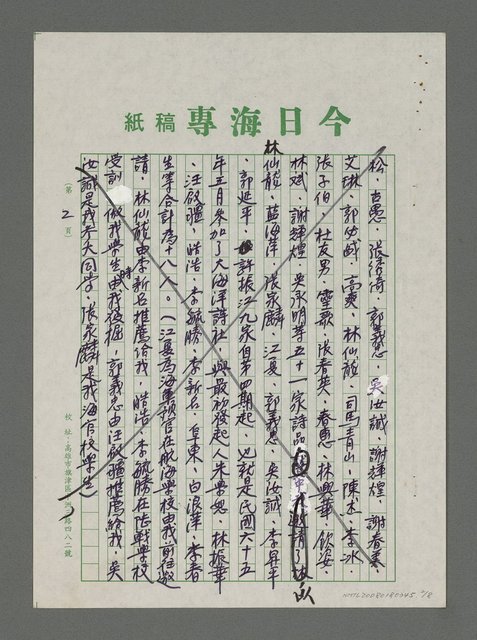 今日海專稿紙
松、古愚、張綺綺、郭義忠、吳汝誠、謝輝煌、謝春華
艾琳、郭幼城、高爽、林仙龍、司馬青山、陳木、李冰
張子伯、杜友男、靈歌、張春英、春惠、林興華、欽姿、
林斌、謝輝煌、吳承明等五十一家詩品中邀請了
林仙龍、藍海萍、張家麟、江夏、郭義忠、吳汝誠、李昇平
、郭延平、許振江九家自第四期起,也就是民國六十五
年五月參加了大海洋詩社,與最初發起人朱學恕、林振華
、汪啟疆、皓浩、李毓勝、李新名、阜東、白浪萍、李春
生等合計為十八人。(江夏為海軍預官在航海學校由我前往邀
請,林仙龍由李新名推薦給我,皓浩、李毓勝在陸戰學校
受訓,做我學生時由我後掘,郭義忠由汪啟疆推薦給我,吳
汝誠是我夫人同學,張家麟是我海官校學生
(第 2 頁)
校址:高雄市旗津區 路四八二號
NMTL20080180045